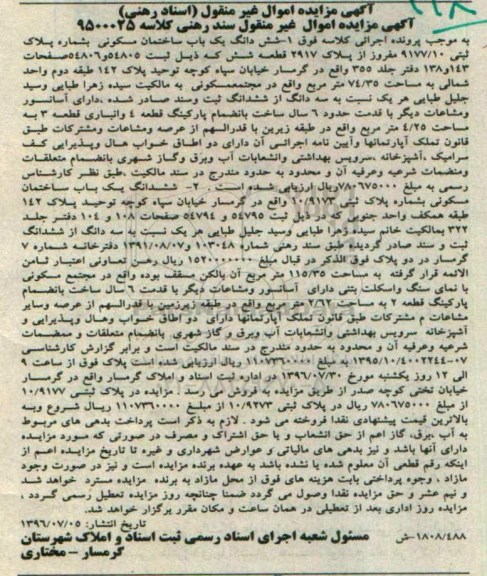 آگهی مزایده اموال غیر منقول (اسناد رهنی)
آگهی مزایده اموال غیر منقول سند رهنی کلاسه ۹۵۰۰۰۲۵
به موجب پرونده اجرائی کلاسه فوق ۱-شش دانگ یک باب ساختمان مسکونی بشماره پلاک
ثبتی ۹۱۷۷/۱۰ مفروز از پلاک ۲۹۱۷ قطعه شش که ذیل ثبت ۵۴۸۰۵و۵۴۸۰۶صفحات
۱۴۳و۱۳۸ دفتر جلد ۳۵۵ واقع در گرمسار خیابان سپاه کوچه توحید پلاک ۱۴۲ طبقه دوم واحد
شمالی به مساحت ۷۴/۳۵ متر مربع واقع در مجتمعمسکونی به مالکیت سیده زهرا طبایی وسید
جلیل طبایی هر یک نسبت به سه دانگ از ششدانگ ثبت وسند صادر شده ،دارای آسانسور
ومشاعات دیگر با قدمت حدود ۶ سال ساخت بانضمام پارکینگ قطعه ۴ وانباری قطعه ۳ به
مساحت ۴/۲۵ متر مربع واقع در طبقه زیرین با قدرالسهم از عرصه ومشاعات ومشترکات طبق
قانون تملک آپارتمانها وآیین نامه اجرائی آن دارای دو اطاق خواب هال وپذیرایی کف
سرامیک ،آشپزخانه ،سرویس بهداشتی وانشعابات آب وبرق وگاز شهری بانضمام متعلقات
ومنضمات شرعیه وعرفیه آن و محدود به حدود مندرج در سند مالکیت .طبق نظر کارشناس
رسمی به مبلغ ۷۸۰۶۷۵۰۰۰ریال ارزیابی شده است . ۲- ششدانگ یک باب ساختمان
مسکونی بشماره پلاک ثبتی ۱۰/۹۱۷۳ واقع در گرمسار خیابان سپاه کوچه توحید پلاک ۱۴۲
طبقه همکف واحد جنوبی که در ذیل ثبت ۵۴۷۹۵ و ۵۴۷۹۴ صفحات ۱۰۸ و ۱۰۴ دفتر جلد
۳۲۲ بمالکیت خانم سیده زهرا طبایی وسید جلیل طبایی هر یک نسبت به سه دانگ از ششدانگ
ثبت و سند صادر گردیده طبق سند رهنی شماره ۱۰۳۰۴۸ و۱۳۹۱/۰۸/۰۷ دفترخانه شماره ۷
گرمسار در دو پلاک فوق الذکر در قبال مبلغ ۱۵۲۰۰۰۰۰۰۰ ریال رهن تعاونی اعتبار ثامن
الائمه قرار گرفته به مساحت ۱۱۵/۳۵ متر مربع آن بالکن مسقف بوده واقع در مجتمع مسکونی
با نمای سنگ واسکلت بتنی دارای آسانسور ومشاعات دیگر با قدمت ۶ سال ساخت بانضمام
پارکینگ قطعه ۲ به مساحت ۲/۶۲ متر مربع واقع در طبقه زیرزمین با قدرالسهم از عرصه وسایر
مشاعات و مشترکات طبق قانون تملک آپارتمانها دارای دو اطاق خواب وهال وپذیرایی و
آشپزخانه سرویس بهداشتی وانشعابات آب وبرق و گاز شهری بانضمام متعلقات و منضمات
شرعیه وعرفیه آن و محدود به حدود مندرج در سند مالکیت است و برابر گزارش کارشناسی
۱۳۹۵/۱۰/۴۰۰۲۲۴۴-۰۷ به مبلغ ۱۱۰۷۳۶۰۰۰۰ ریال ارزیابی شده است پلاک فوق از ساعت ۹
الی ۱۲ روز یکشنبه مورخ ۱۳۹۶/۰۷/۳۰ در اداره ثبت اسناد و املاک گرمسار واقع در گرمسار
خیابان تختی کوچه صدر از طریق مزایده به فروش می رسد . مزایده در پلاک ثبتی ۱۰/۹۱۷۷
از مبلغ ۷۸۰۶۷۵۰۰۰ ریال در پلاک ثبتی ۱۰/۹۲۷۳ از مبلغ ۱۱۰۷۳۶۰۰۰۰ ریال شروع وبه
بالاترین قیمت پیشنهادی نقدا فروخته می شود . لازم به ذکر است پرداخت بدهی های مربوط
به آب ،برق، گاز اعم از حق انشعاب و یا حق اشتراک و مصرف در صورتی که مورد مزایده
دارای آنها باشد و نیز بدهی های مالیاتی و عوارض شهرداری و غیره تا تاریخ مزایده اعم از
اینکه رقم قطعی آن معلوم شده یا نشده باشد به عهده برنده مزایده است و نیز در صورت وجود
مازاد ، وجوه پرداختی بابت هزینه های فوق از محل مازاد به برنده مزایده مسترد خواهد شد
و نیم عشر و حق مزایده نقدا وصول می گردد ضمنا چنانچه روز مزایده تعطیل رسمی گردد ،
مزایده روز اداری بعد از تعطیلی در همان ساعت و مکان مقرر برگزار خواهد شد.
تاریخ انتشار: ۱۳۹۶/۰۷/۰۵
۱۸۰۸/۴۸۸-ش مسئول شعبه اجرای اسناد رسمی ثبت اسناد و املاک شهرستان
گرمسار – مختاری